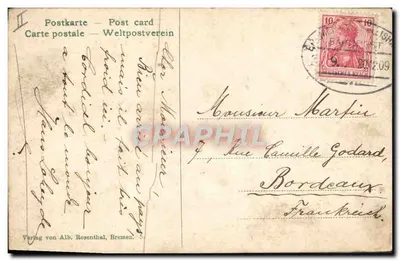 II
Postkarte – Post card
Carte postale – Weltpostverein
Cher Monsieur
Bien arrivé au pays
mais il fait très
froid ici.
Cordial bonjour
a tout le monde
10 10
09
CPAPHIL.COM
Monsieur Martin
7, Rue Camille Godard,
Bordeaux
Frankreich.
Verlag von Alb. Rosenthal, Bremen.